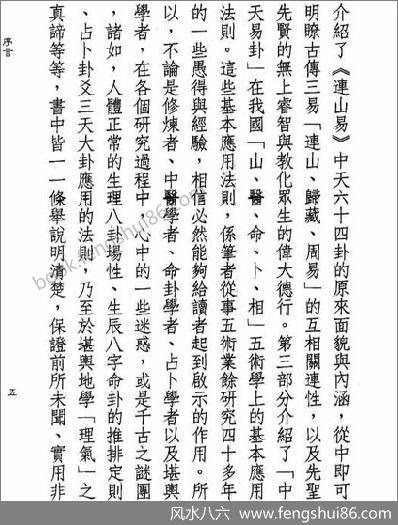 介紹了《連山易》中天六十四卦的原來面貌與內涵，從中即可
明瞭古傳三易「連山、歸藏、周易」的互相關連性，以及先聖
先賢的無上睿智與教化眾生的偉大德行。第三部分介紹了「中
天易卦」在我國「山、醫、命、卜、相」五術學上的基本應用
法則。這些基本應用法則，係筆者從事五術業餘研究四十多年
的一些愚得與經驗，相信必然能夠給讀者起到啟示的作用。所
以，不論是修煉者、中醫學者、命卦學者、占卜學者以及堪輿
學者，在各個研究過程中，心中的一些迷惑，或是千古之謎團
，諸如，人體正常的生理八卦場性、生辰八字命卦的推排定則
、占卜卦爻三天大卦應用的法則，乃至於堪輿地學「理氣」之
真諦等等，書中皆一一條舉說明清楚，保證前所未聞、實用非
序言
五
book.fengshui86.com
风水八六 - www.fengshui86.com